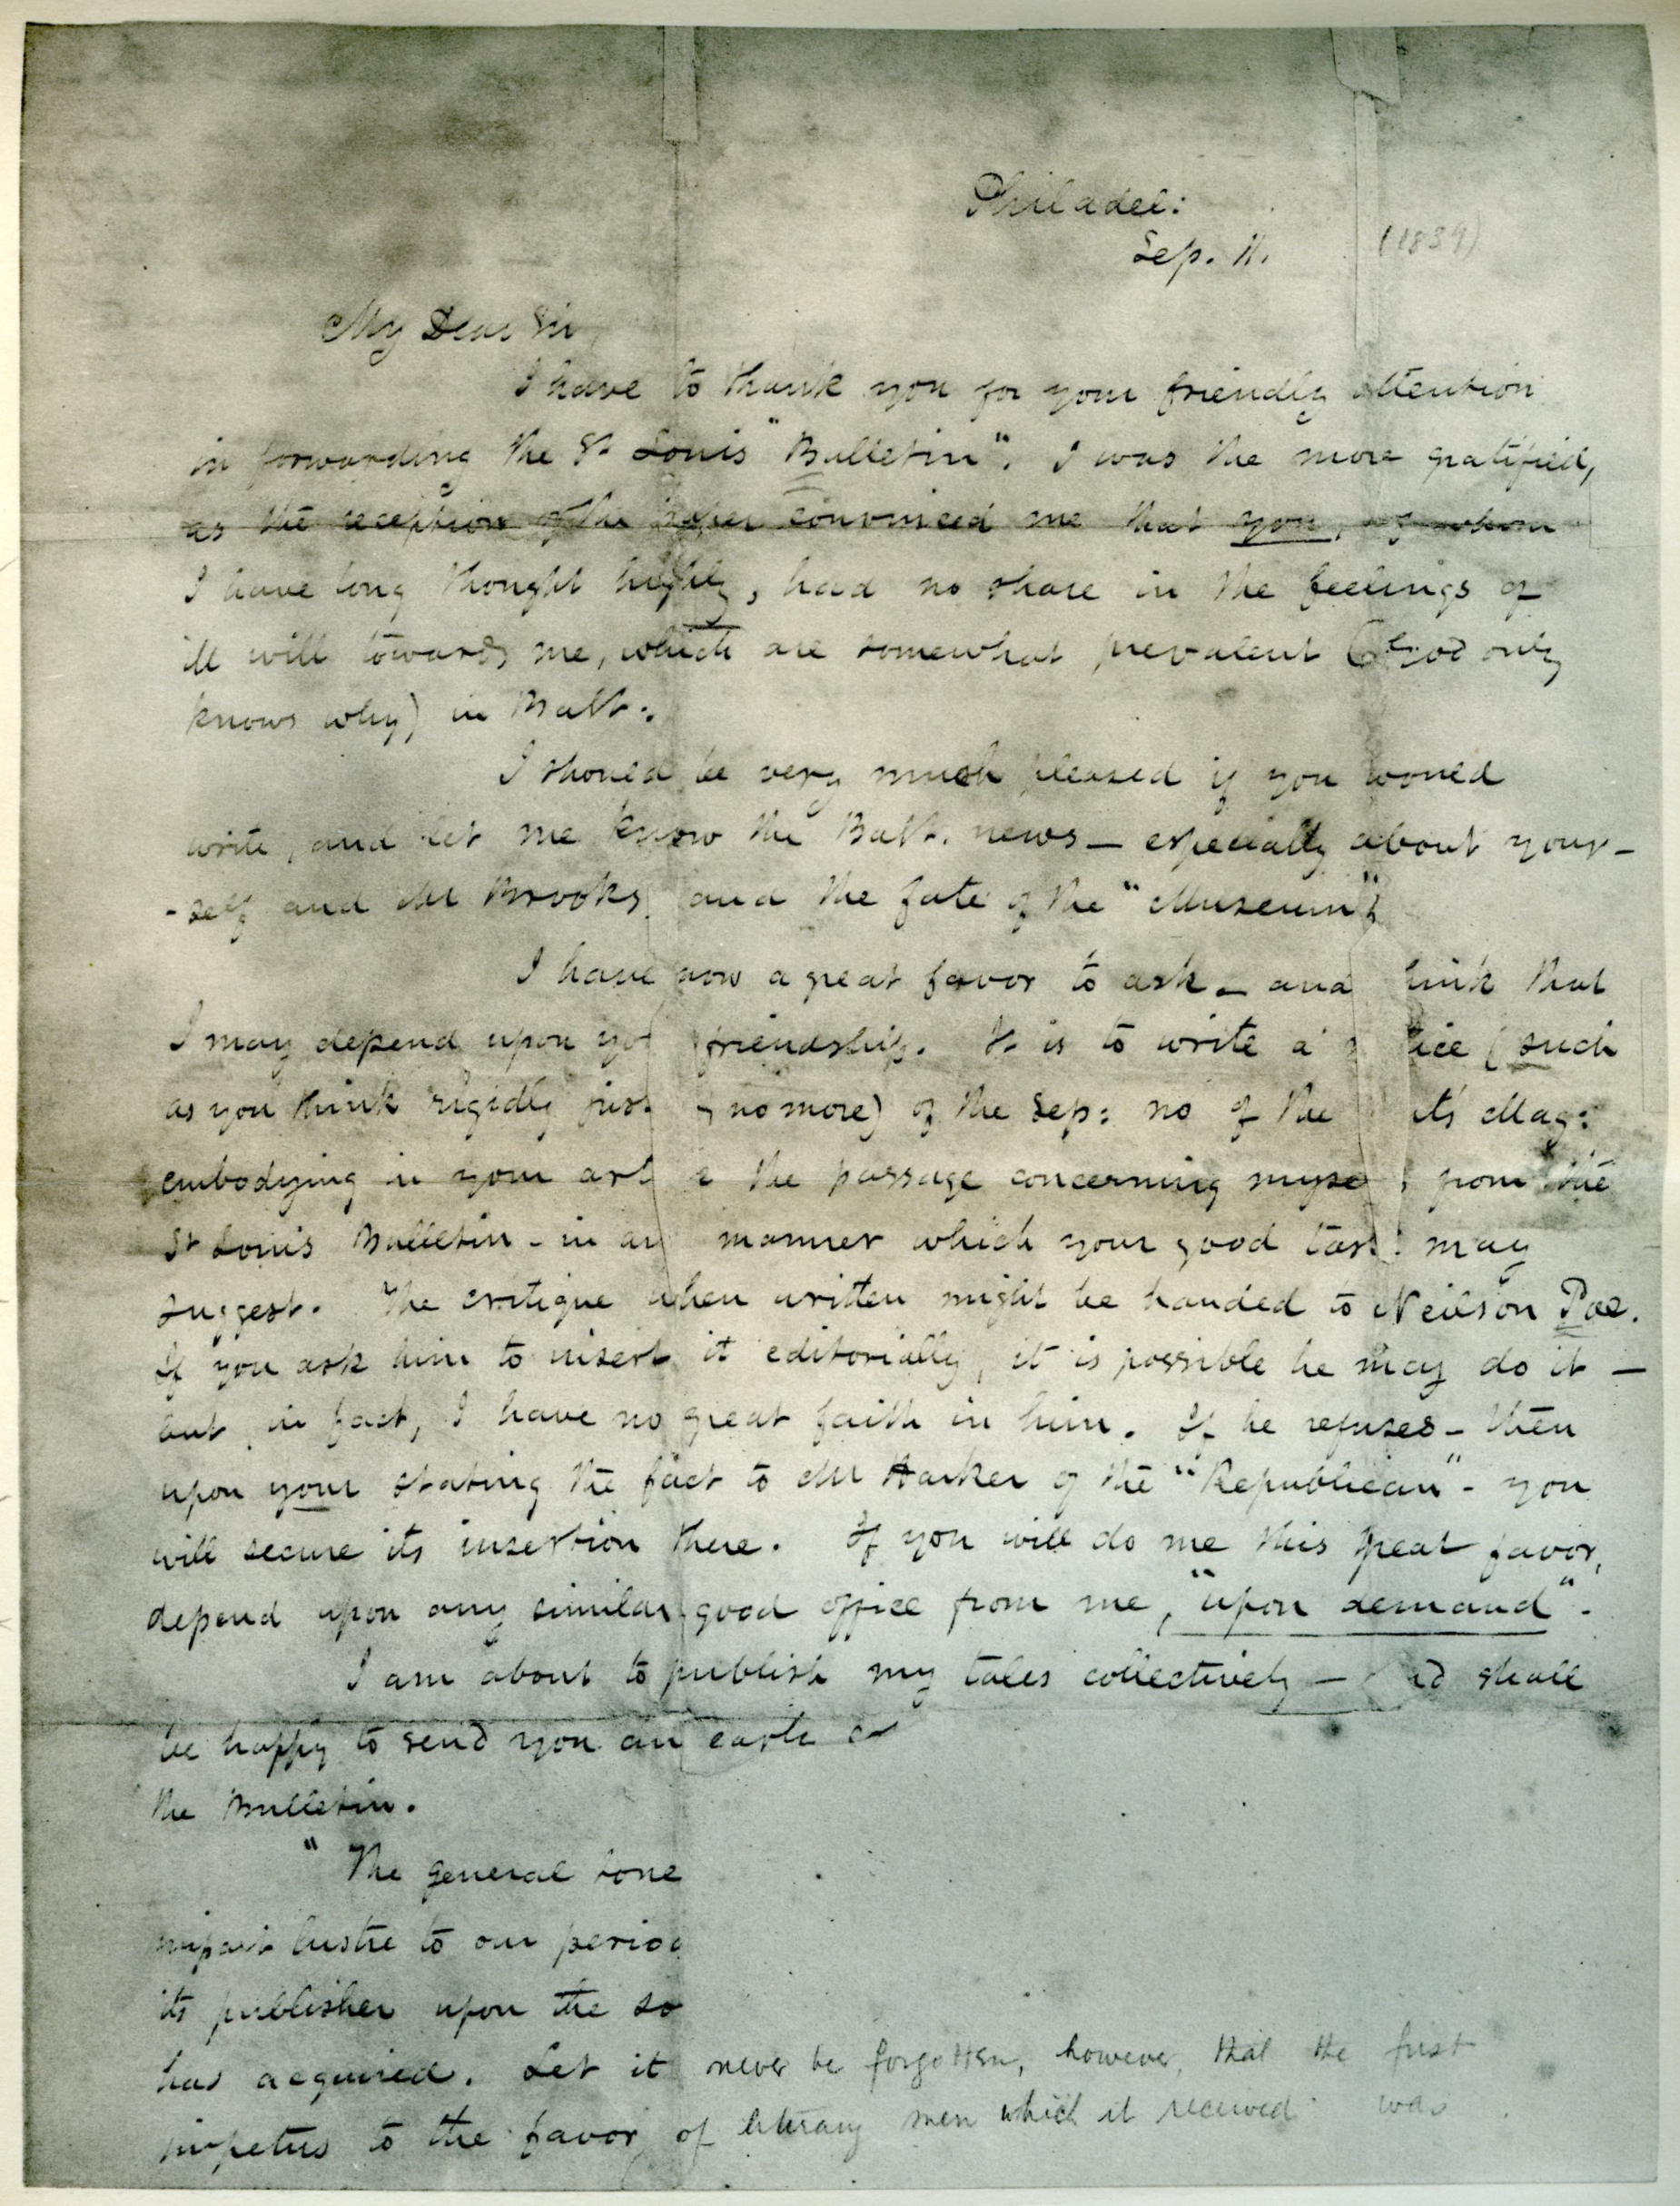 Philadel:
Sep. 11. (1839)
My Dear Sir,
I have to thank you for your friendly attention
in forwarding the St Louis "Bulletin". I was the more gratified,
as the reception of the paper convinced me that you, of whom
I have long thought highly, had no share in the feelings of
ill will towards me, which are somewhat prevalent (God only
knows why) in Balt:.
I should be very much pleased if you would
write, and let me know the Balt. news — especially about your-
-self and Mr Brooks, and the fate of the "Museum".
I have now a great favor to ask — and hink that
I may depend upon yo friendship. It is to write a tice (such
as you think rigidly jus no more) of the Sep: no of the t's Mag:
embodying in your art the passage concerning myse from the
St Louis Bulletin - in an manner which your good tas may
suggest. The critique when written might be handed to Neilson Poe.
If you ask him to insert it editorially, it is possible he may do it —
but, in fact, I have no great faith in him. If he refuses - then
upon your stating the fact to Mr Harker of the "Republican" - you
will secure its insertion there. If you will do me this great favor,
depend upon any similar good office from me, "upon demand".
I am about to publish my tales collectively — shall
be happy to send you an earl
the Bulletin.
"The general tone
impart lustre to our perio
its publisher upon the so
has acquired. Let it never be forgotten, however, that the first
impetus to the favor of literary men which it received was